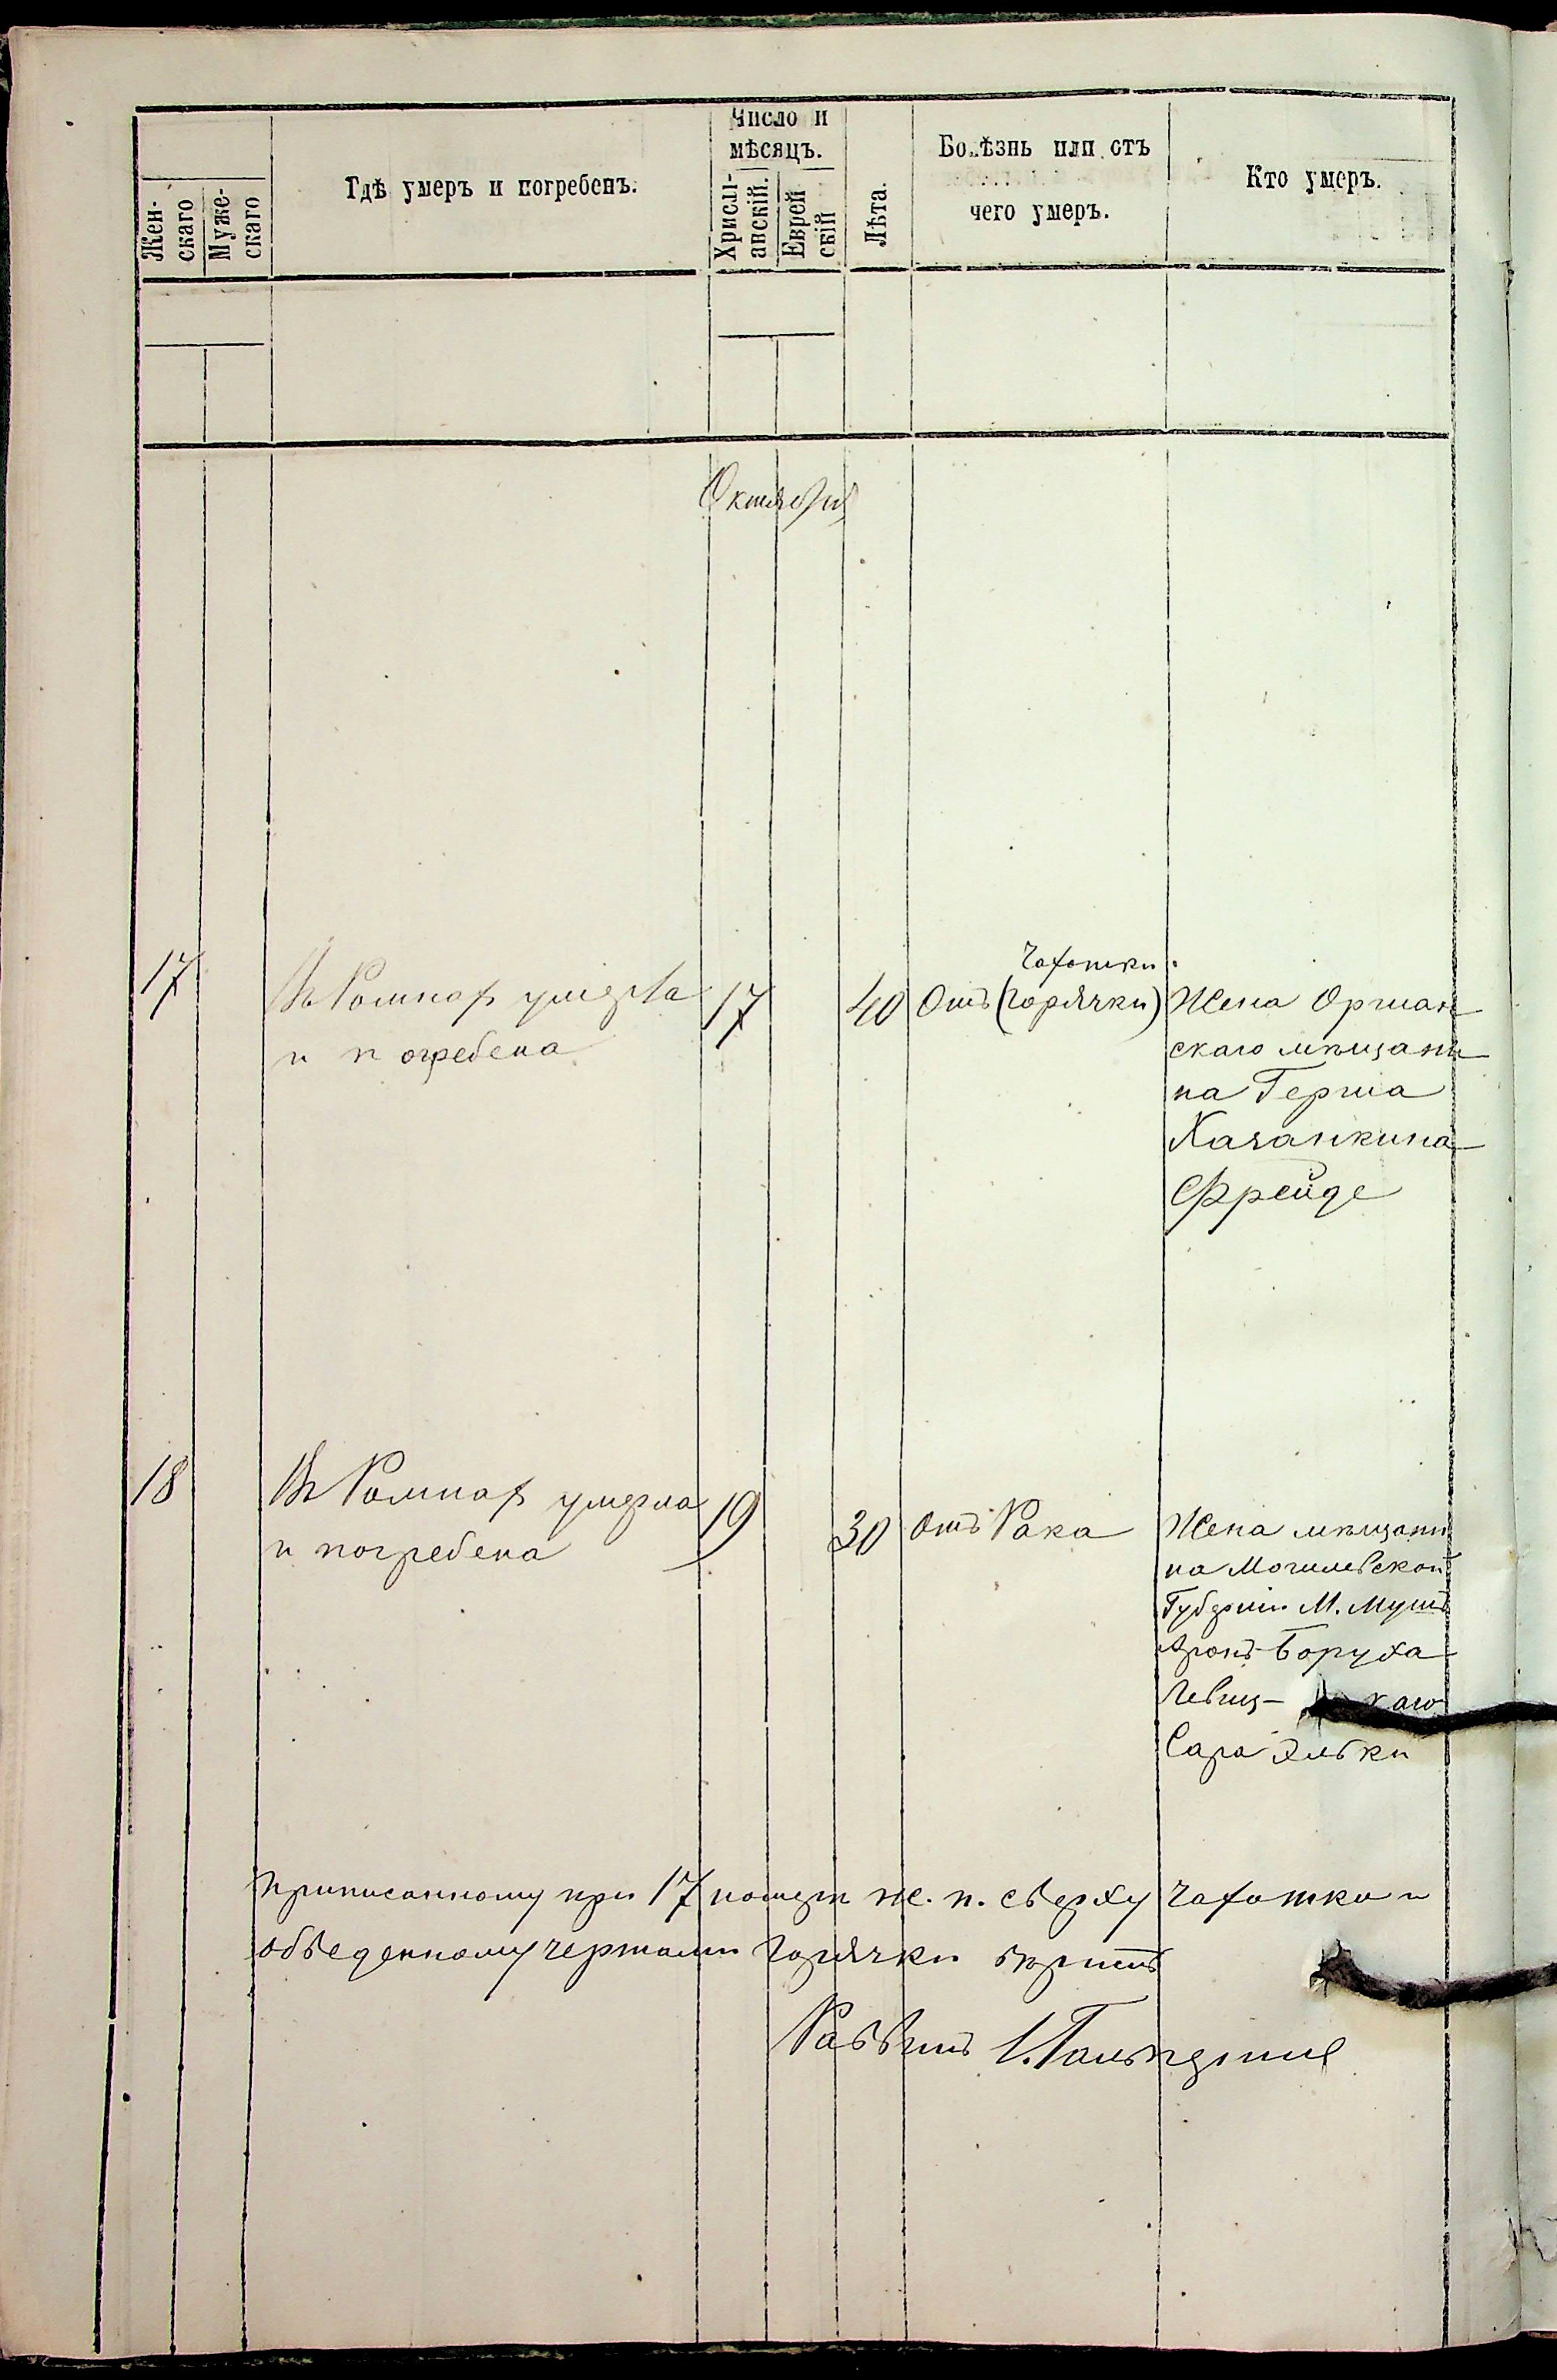 Жен-
скаго
Муже-
скаго
Гдѣ умеръ и погребенъ.
Число и
мѣсяцъ.
Христі-
анскій.
Еврей
скій
Лѣта.
Болѣзнь или отъ
чего умеръ.
Кто умеръ.
Октября
17
Въ Ромнахъ умерла
и погребена
17
40
Чахотки
Отъ (Горячки)
Жена Оршан
скаго мѣщани
на Герша
Хазанкина
Фрейде
18
Въ Ромнахъ умерла
и погребена
19
30
Отъ Рака
Жена мѣщани
на Могилевской
Губерніи М.
Аронъ-Боруха
каго
Сара Элька
Приписанному при 17 номерѣ ж. п. сверху Чахотки и
обведенному чертами Горячки вѣрить
Раввинъ